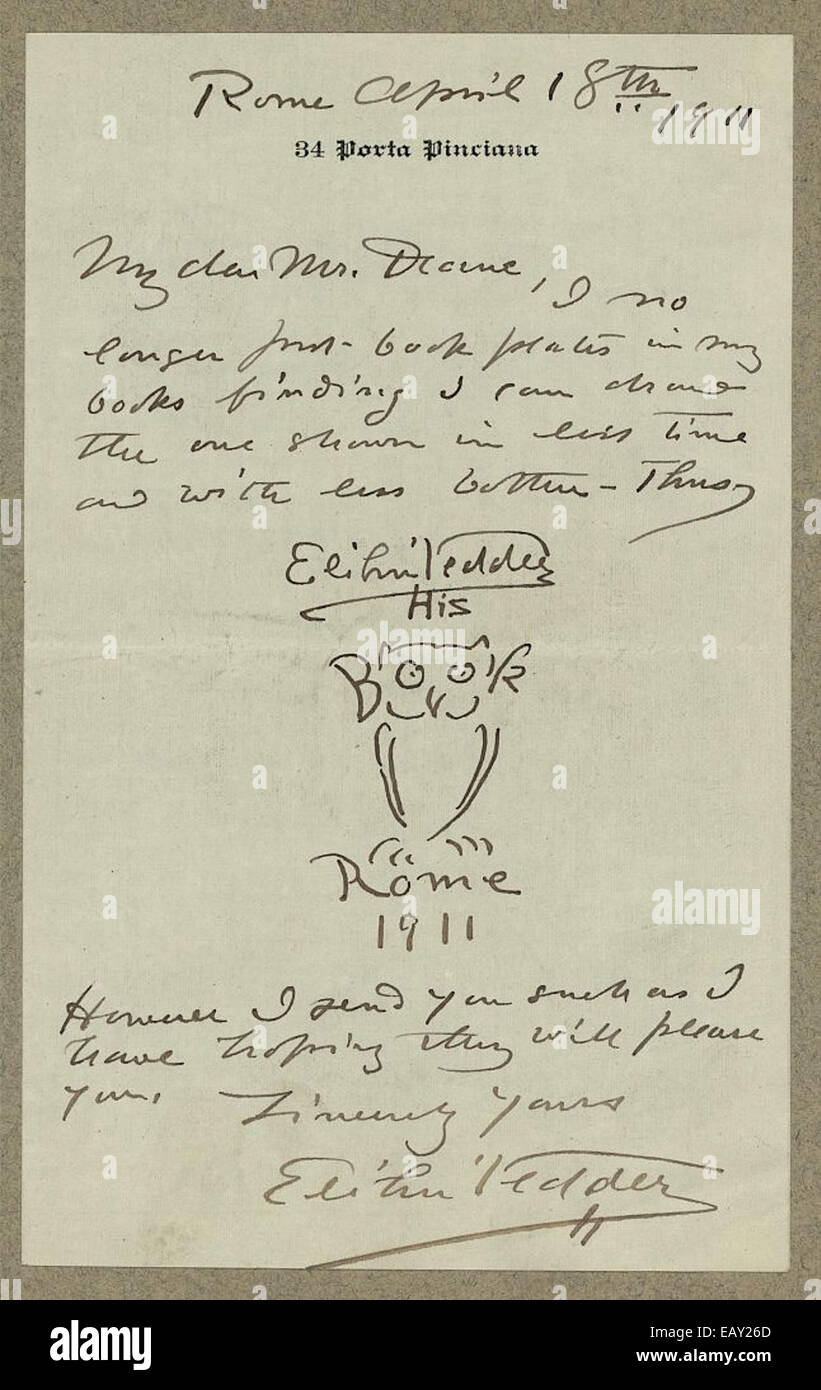 Rome April 18th 1911
34 Porta Pinciana
My dear Mr. Deane, I no
longer put book plates in my
books finding I can draw
the one shown in less time
and with less bother - Thus
Elihu Vedder
His
Book
Rome
1911
However I send you such as I
have hoping they will please
you. Sincerely Yours
Elihu Vedder
alamy
alamy
alamy
alamy
Image ID: EAY26D
www.alamy.com